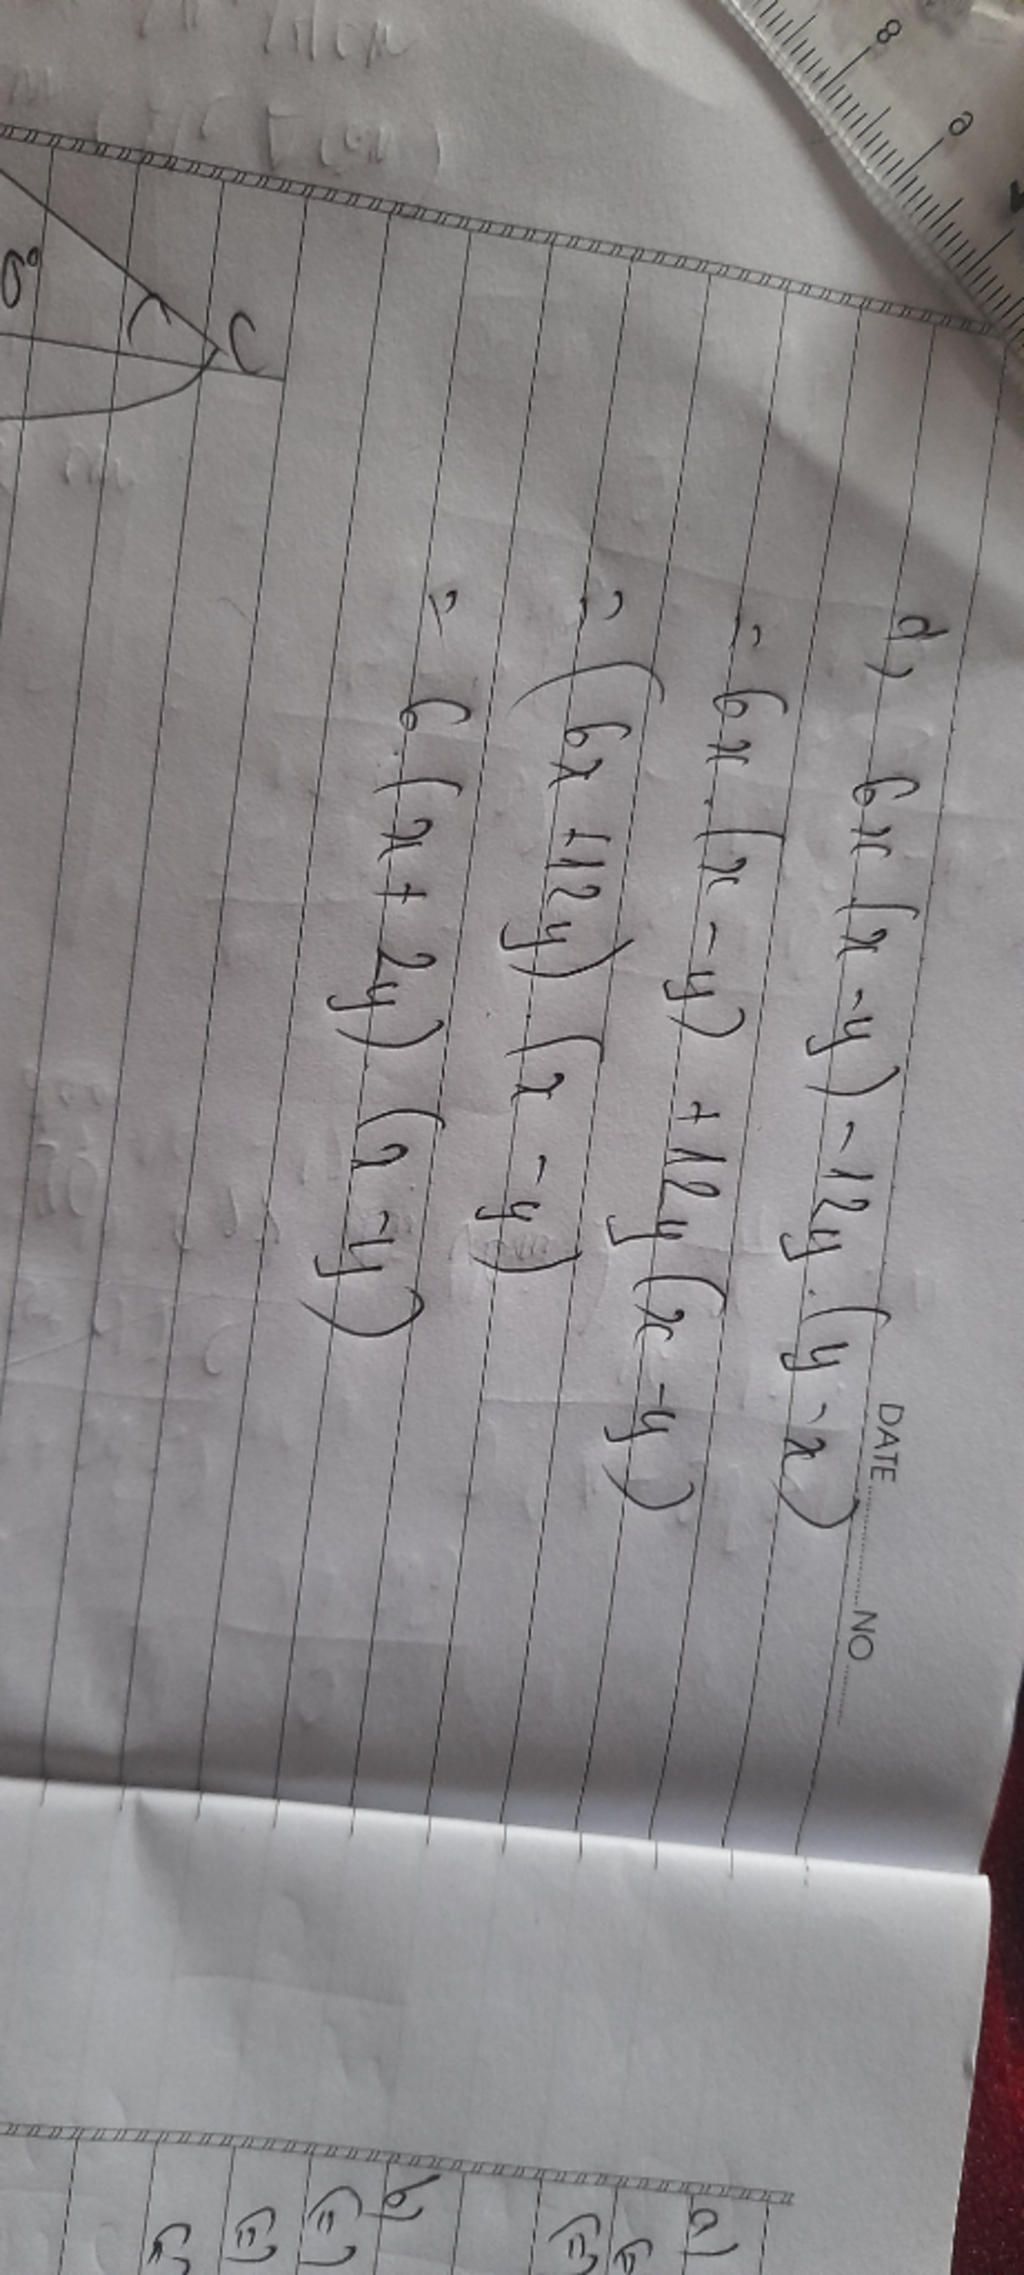 DATE NO
d, 6x(x-y)-12y.(y-x)
= 6x.(x-y)+12y(x-y)
= (6x+12y)(x-y)
= 6.(x+2y)(x-y)
C
8
9